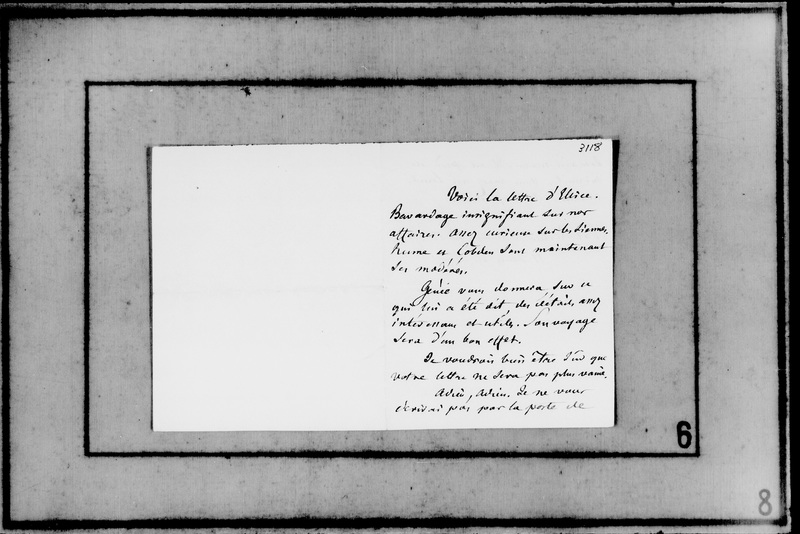 3118
Voici la lettre d'Ellice.
Bavardage insignifiant sur nos
affaires. Assez curieux sur les siennes.
Hume et Cobden sont maintenant
des modérés.
Génie vous donnera sur ce
qui lui a été dit des détails assez
intéressans et utiles. Son voyage
sera d'un bon effet.
Je voudrais bien être sûr que
votre lettre ne sera pas plus vaine.
Adieu, adieu. Je ne vous
écrirai pas par la poste de
6
8